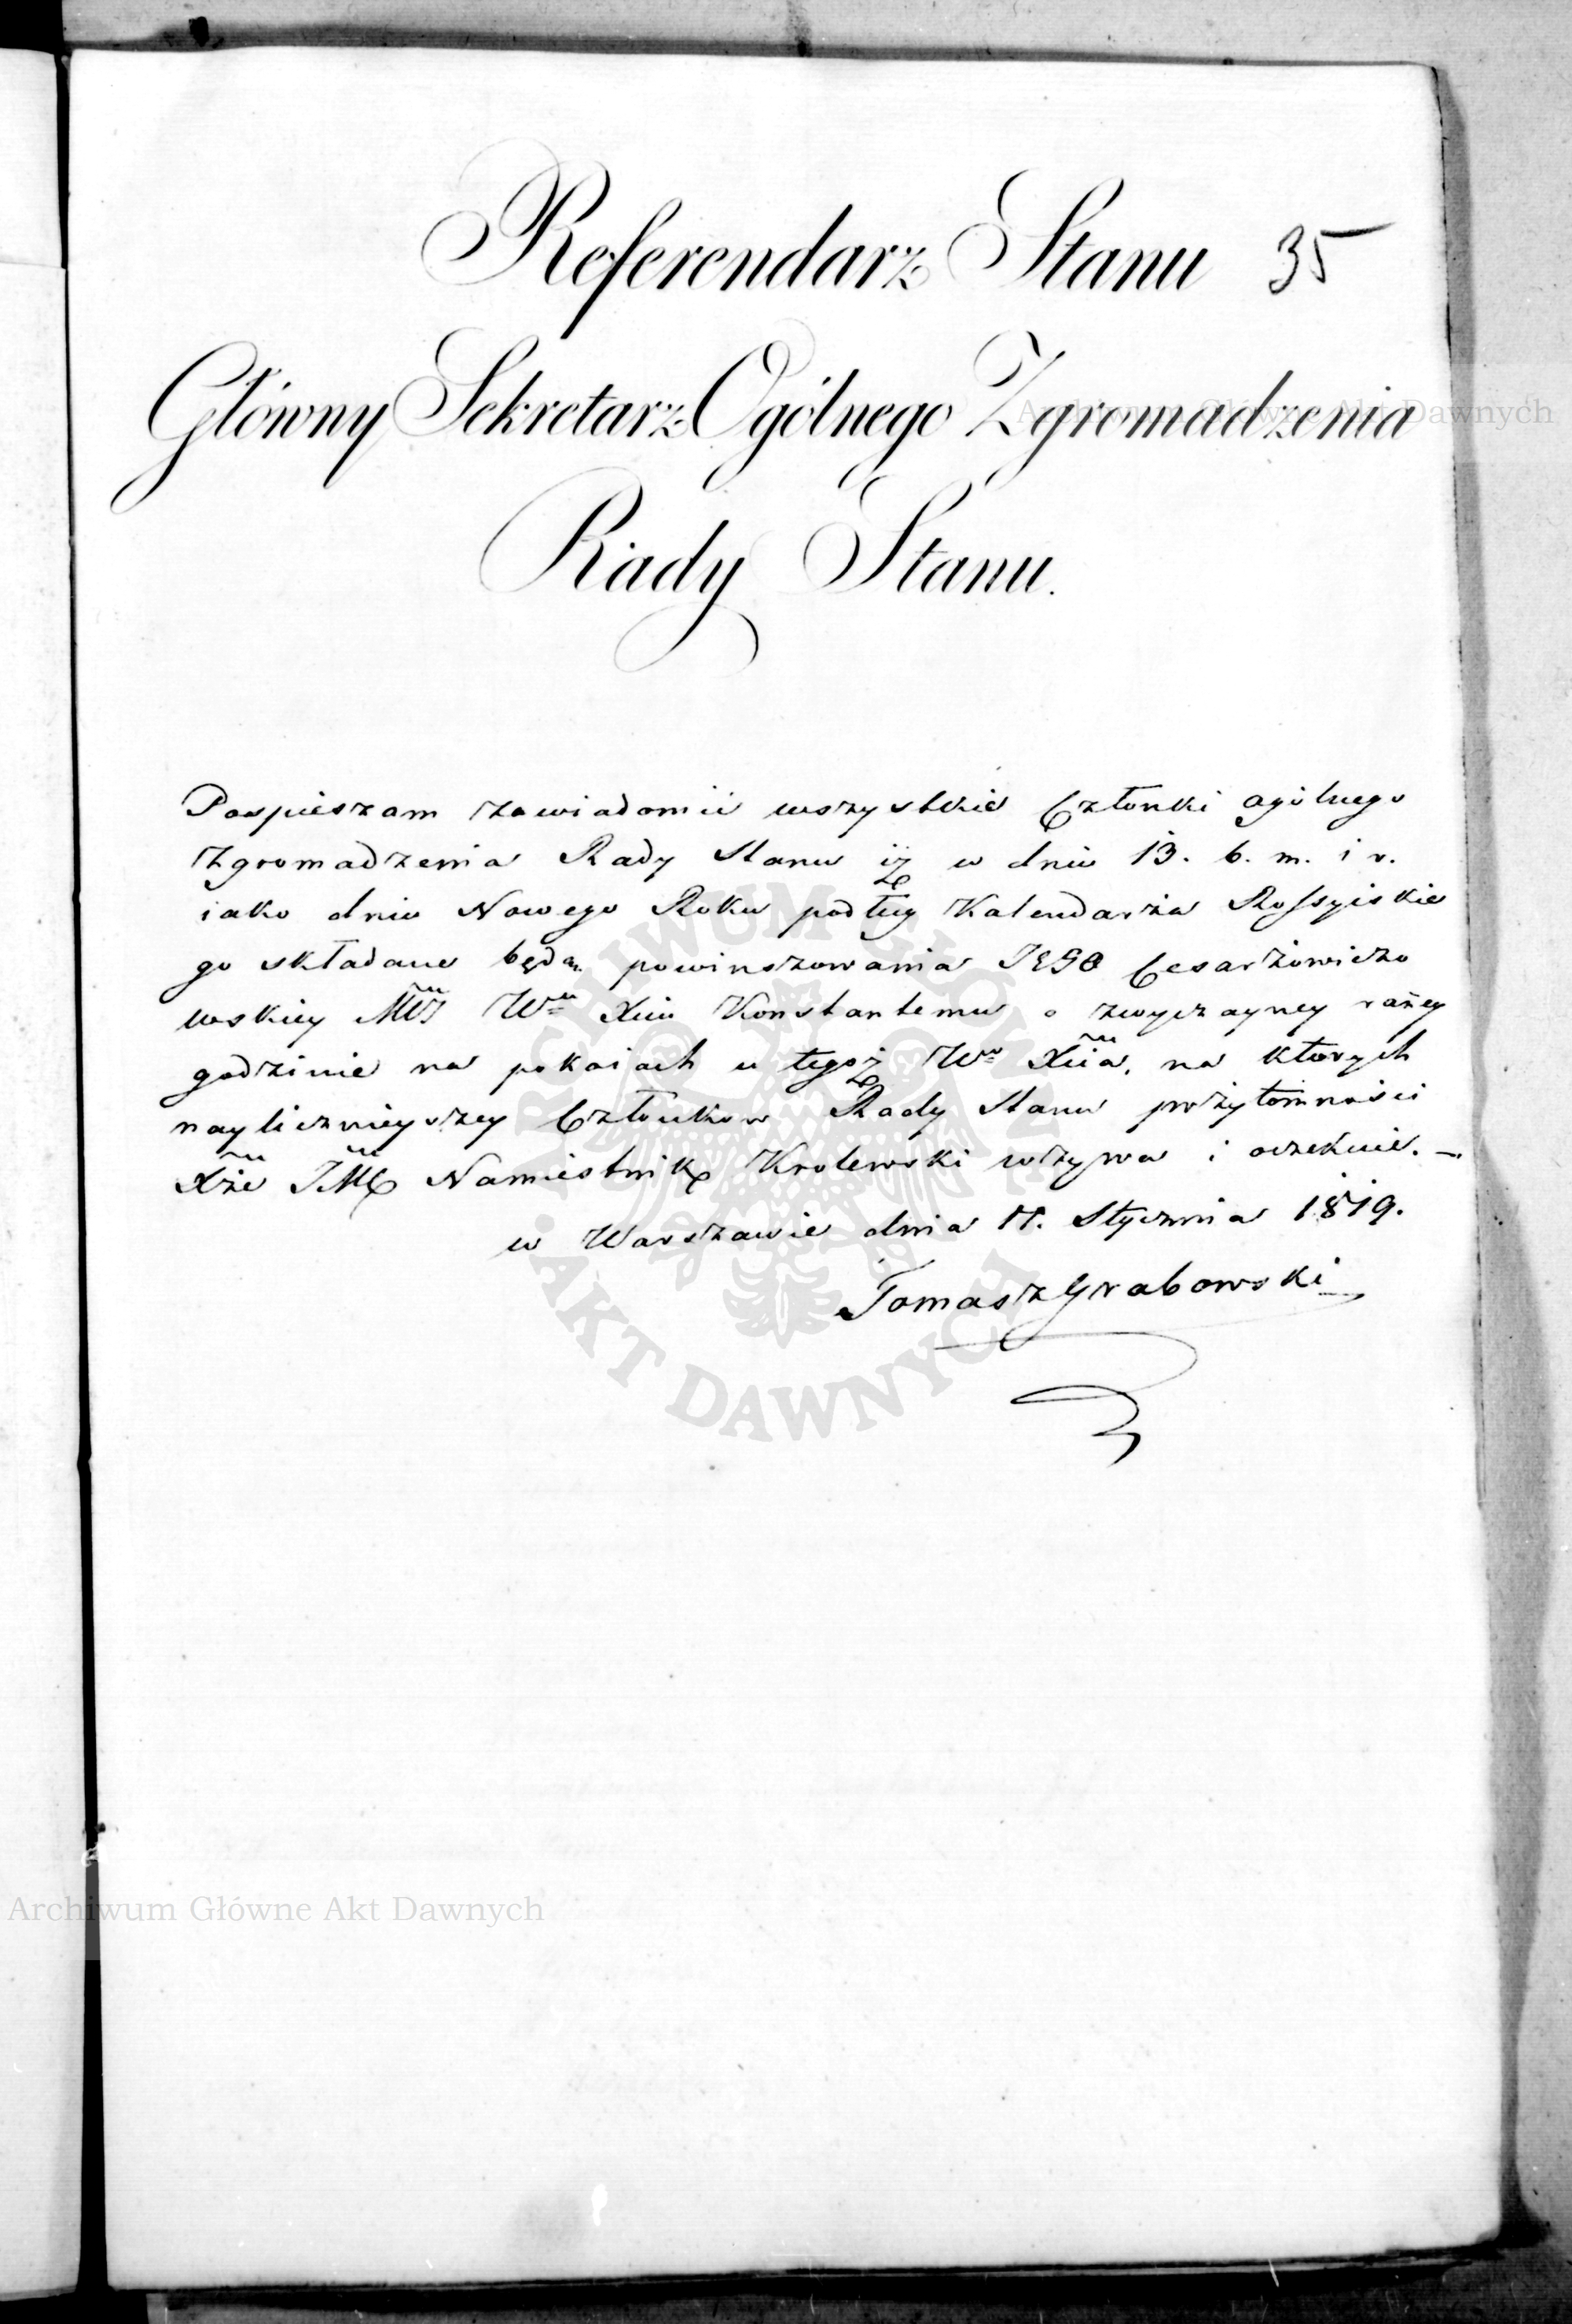 Referendarz Stanu 35
Główny Sekretarz Ogólnego Zgromadzenia
Rady Stanu.
Pospieszam zawiadomić wszystkie Członki ogólnego
Zgromadzenia Rady Stanu iż w dniu 13. b. m. i r.
iako dniu Nowego Roku podług Kalendarza Rossyiskie
go składane będą powinszowania JEGO Cesarzowiczo
wskiey Mci Wu Xciu Konstantemu o zwyczayney ranney
godzinie na pokoiach u tegoż Wo Xcia, na których
naylicznieyszey Członkow Rady Stanu przytomności
Xże JMć Namiestnik Krolewski wzywa i oczekuie. —
w Warszawie dnia 11. Stycznia 1819.
Tomasz Grabowski
Archiwum Główne Akt Dawnych
ARCHIWUM GŁÓWNE
AKT DAWNYCH
Archiwum Główne Akt Dawnych